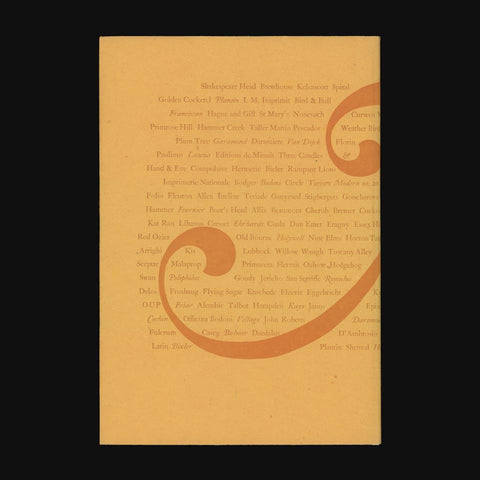 Shakespeare Head Brewhouse Kelmscott Spiral
Golden Cockerel Plantin I. M. Imprimit Bird & Bull
Franciscan Hague and Gill St Mary's Nonesuch Curwen
Primrose Hill Hammer Creek Taller Martin Pescador Weather Bird
Plum Tree Garamond Daranziere Van Dijck Florin
Paulinus Lutetia Editions de Minuit Three Candles &
Hand & Eye Compulsive Hermetic Bieler Rampant Lions
Imprimerie Nationale Rodger Bodoni Circle Tieren Modern no. 20
Folio Fleuron Allen Incline Teriade Guyesed Stigbergets Goncharova
Hammer Fournier Boar's Head Albis Beaumont Cherub Bremer Cuckoo
Kat Ran Libanus Cresset Ehrhardt Cuala Dun Emer Eragny Essex
Red Ozier Old Bourne Holywell Nine Elms Horton
Arrighi Kis Lubbock Willow Wough Tuscany Alley
Sceptre Malaprop Primavera Hermit Oxbow Hedgehog
Swan Poliphilus Goudy Jericho San Serriffe Reynolds
Delos Fronhaug Flying Sugar Enschede Elzevir Eggebrecht
OUP Friar Alembic Talbot Hampden Kaye Janus
Cochin Officina Bodoni Village John Roberts
Fulcrum Careg Bulmer Daedalus D'Ambrosio
Latin Binder Plantin Shenval